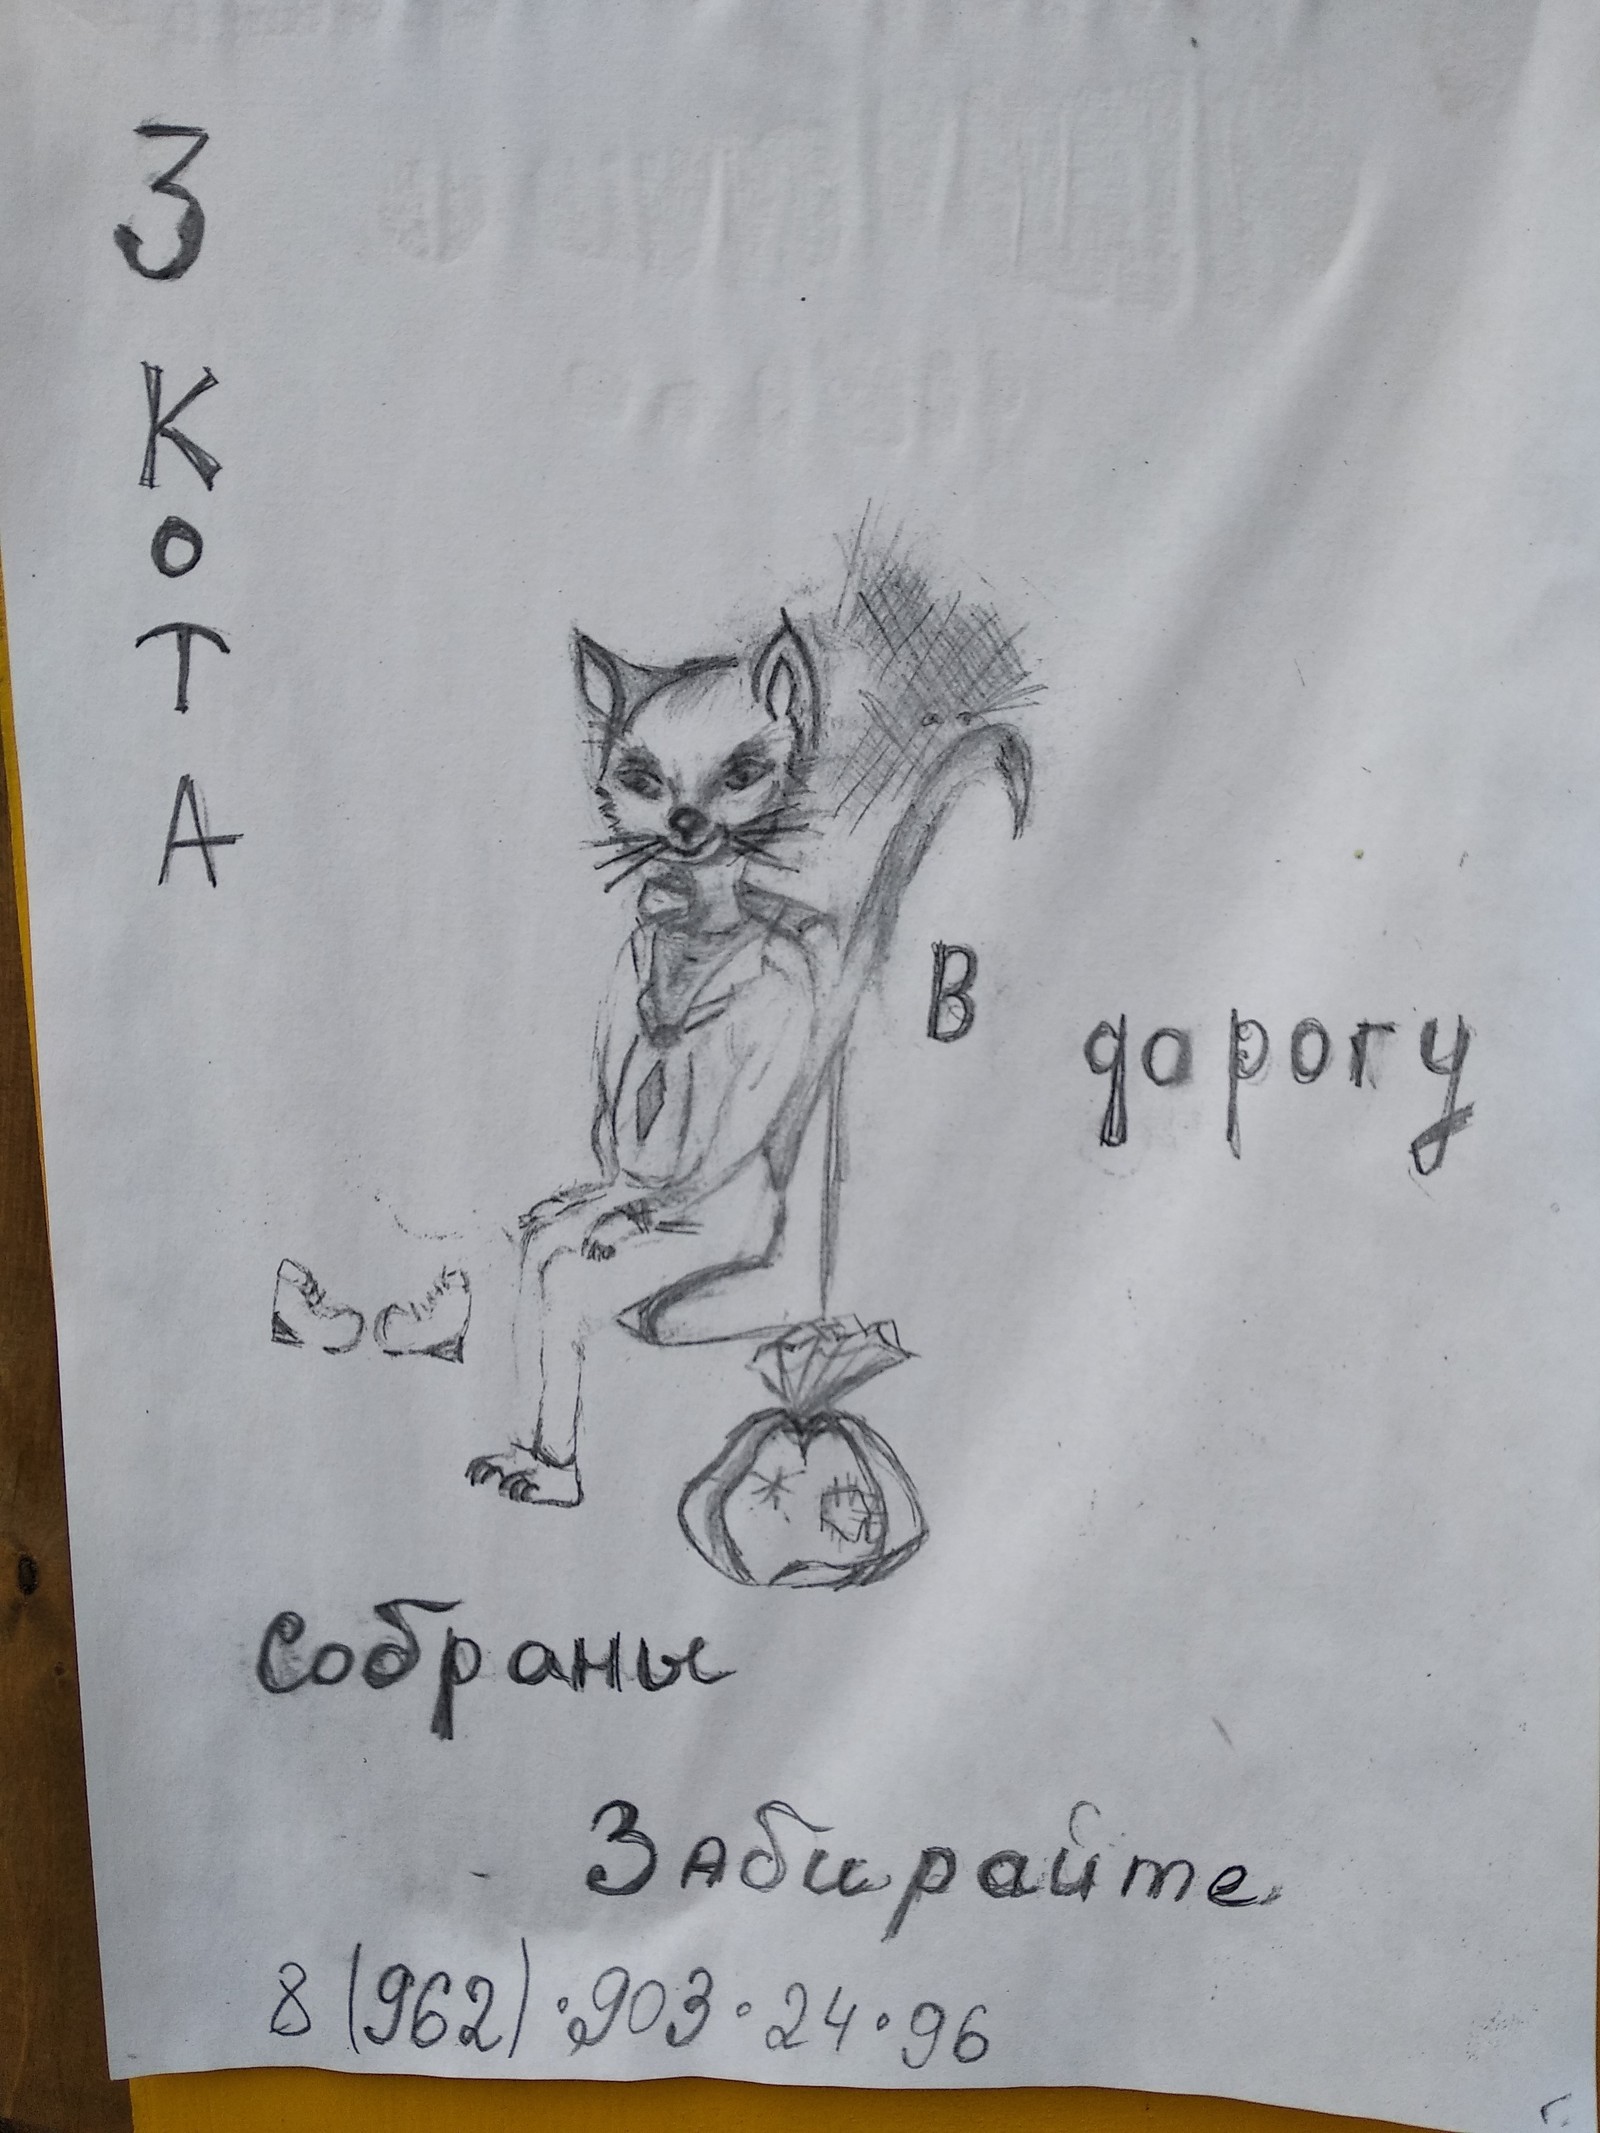 3
КОТА
В дорогу
Собраны
Забирайте
8 (962) • 903 • 24 • 96